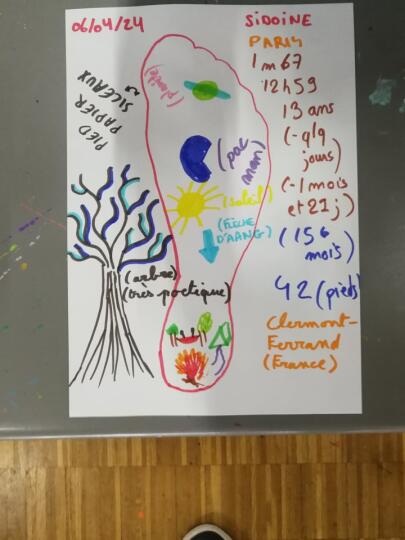 06/04/24
SIDOINE
PARIS
1m67
12h59
13 ans
(-9/9
jours)
(-1 mois
et 21j)
(156
mois)
42 (pieds)
Clermont-
Ferrand
(France)
PIED
PAPIER
CISEAUX
(planète)
(pac
man)
(soleil)
(FLÈCHE
D'AANG)
(arbre)
(très poétique)